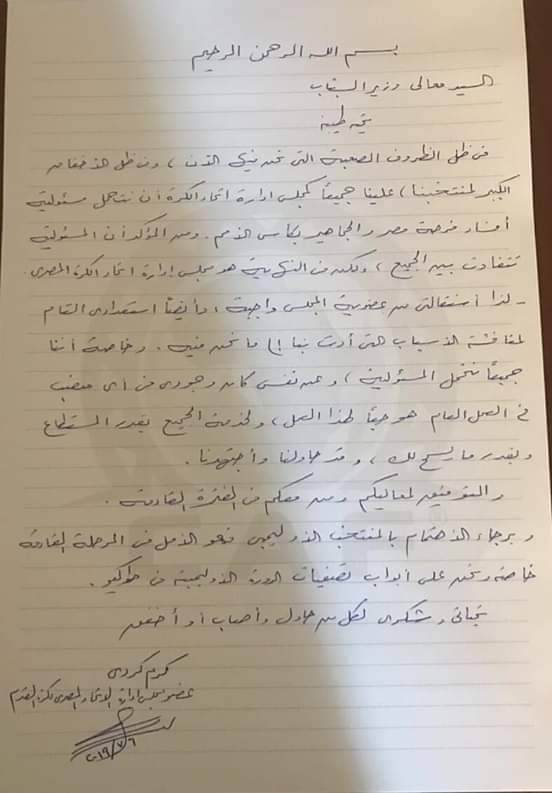 بسم الله الرحمن الرحيم
السيد معالى وزير الشباب
تحية طيبة
فى ظل الظروف الصعبة التى نحن فيها الآن ، وفى ظل الاخفاق
الكبير لمنتخبنا ، علينا جميعاً كمجلس ادارة اتحاد الكرة أن نتحمل مسئولية
أفساد فرحة مصر والجماهير بكاس الامم . ومن المؤكد أن المسئولية
تتفاوت بين الجميع ، ولكن فى النهاية هو مجلس إدارة اتحاد الكرة المصرى .
- لذا أستقالتى من عضوية المجلس واجبة ، وأيضاً استعدادى التام
لمناقشة الأسباب التى أدت بنا إلى ما نحن فيه . وخاصة أننا
جميعاً نتحمل المسئولية ، وعن نفسى كان وجودى فى أى منصب
فى العمل العام هو حباً لهذا العمل ، ولخدمة الجميع بقدر المستطاع
وبقدر ما يسمح لك ، وقد حاولنا وأجتهدنا .
والتوفيق لمعاليكم ومن معكم فى الفترة القادمة .
وبرجاء الاهتمام بالمنتخب الاوليمبى فهو الأمل فى المرحلة القادمة
خاصة ونحن على أبواب تصفيات الدورة الاوليمبية فى طوكيو .
تحياتى وشكرى لكل من حاول وأصاب أو أخفق
كرم كردى
عضو مجلس ادارة الاتحاد المصرى لكرة القدم
٢٠١٩/٧/٦